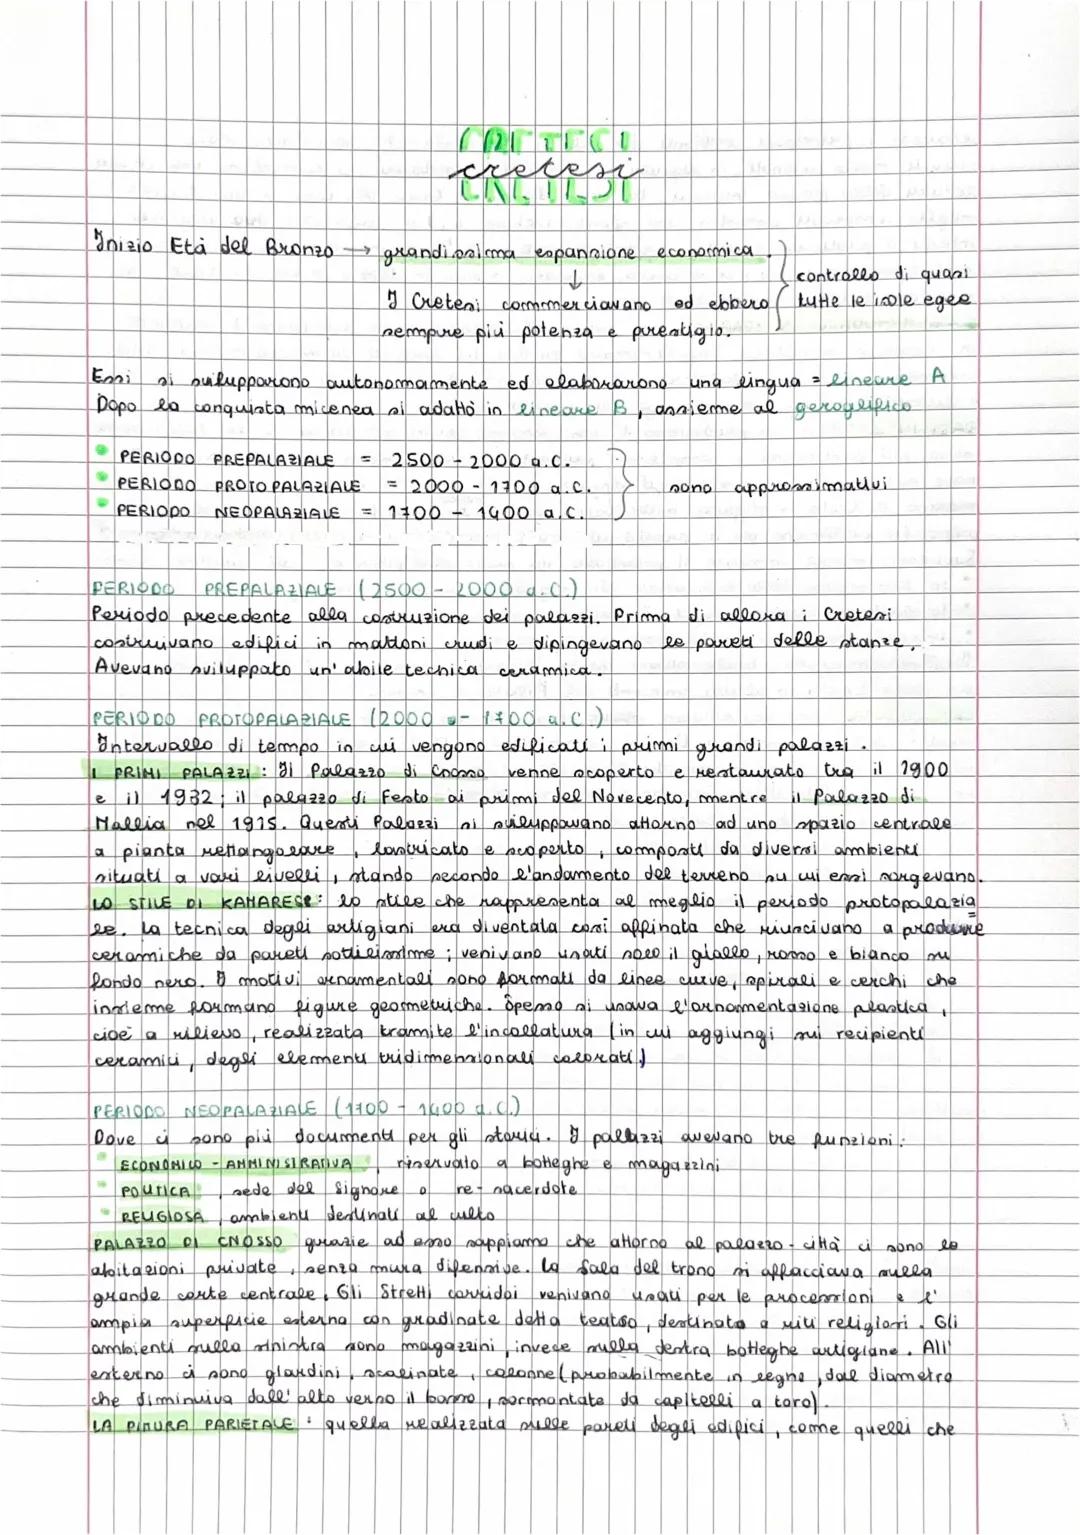 CRETESI
cretesi
Inizio Età del Bronzo → grandissima espansione economica.
↓
controllo di quasi
I Cretesi commerciavano ed ebbero
tutte le isole egee
sempre più potenza e prestigio.
Essi si svilupparono autonomamente ed elaborarono una lingua = lineare A
Dopo la conquista micenea si adattò in lineare B, assieme al geroglifico
• PERIODO PREPALAZIALE = 2500 - 2000 a.C.
• PERIODO PROTOPALAZIALE = 2000 - 1700 a.C.
sono approssimativi
• PERIODO NEOPALAZIALE = 1700 - 1400 a.C.
PERIODO PREPALAZIALE (2500 - 2000 a.C.)
Periodo precedente alla costruzione dei palazzi. Prima di allora i Cretesi
costruivano edifici in mattoni crudi e dipingevano le pareti delle stanze.
Avevano sviluppato un'abile tecnica ceramica.
PERIODO PROTOPALAZIALE (2000 - 1700 a.C.)
Intervallo di tempo in cui vengono edificati i primi grandi palazzi.
I PRIMI PALAZZI: Il Palazzo di Cnosso venne scoperto e restaurato tra il 1900
e il 1932; il palazzo di Festo ai primi del Novecento, mentre il Palazzo di
Mallia nel 1915. Questi Palazzi si sviluppavano attorno ad uno spazio centrale
a pianta rettangolare, lastricato e scoperto, composti da diversi ambienti
situati a vari livelli, stando secondo l'andamento del terreno su cui essi sorgevano.
LO STILE DI KAMARES: lo stile che rappresenta al meglio il periodo protopalazia
le. La tecnica degli artigiani era diventata così affinata che riuscivano a produrre
ceramiche da pareti sottilissime; venivano usati solo il giallo, rosso e bianco su
fondo nero. I motivi ornamentali sono formati da linee curve, spirali e cerchi che
insieme formano figure geometriche. Spesso si usava l'ornamentazione plastica,
cioè a rilievo, realizzata tramite l'incollatura (in cui aggiungi sui recipienti
ceramici, degli elementi tridimensionali colorati)
PERIODO NEOPALAZIALE (1700 - 1400 a.C.)
Dove ci sono più documenti per gli storici. I palazzi avevano tre funzioni:
• ECONOMICO - AMMINISTRATIVA, riservato a botteghe e magazzini
• POLITICA, sede del Signore o re-sacerdote
• RELIGIOSA, ambienti destinati al culto
PALAZZO DI CNOSSO grazie ad esso sappiamo che attorno al palazzo-città ci sono le
abitazioni private, senza mura difensive. La Sala del trono si affacciava sulla
grande corte centrale. Gli Stretti corridoi venivano usati per le processioni e l'
ampia superficie esterna con gradinate detta teatro, destinato a riti religiosi. Gli
ambienti sulla sinistra sono magazzini, invece sulla destra botteghe artigiane. All'
esterno ci sono giardini, scalinate, colonne (probabilmente in legno, dal diametro
che diminuiva dall'alto verso il basso, sormontate da capitelli a toro).
LA PITTURA PARIETALE: quella realizzata sulle pareti degli edifici, come quelli che